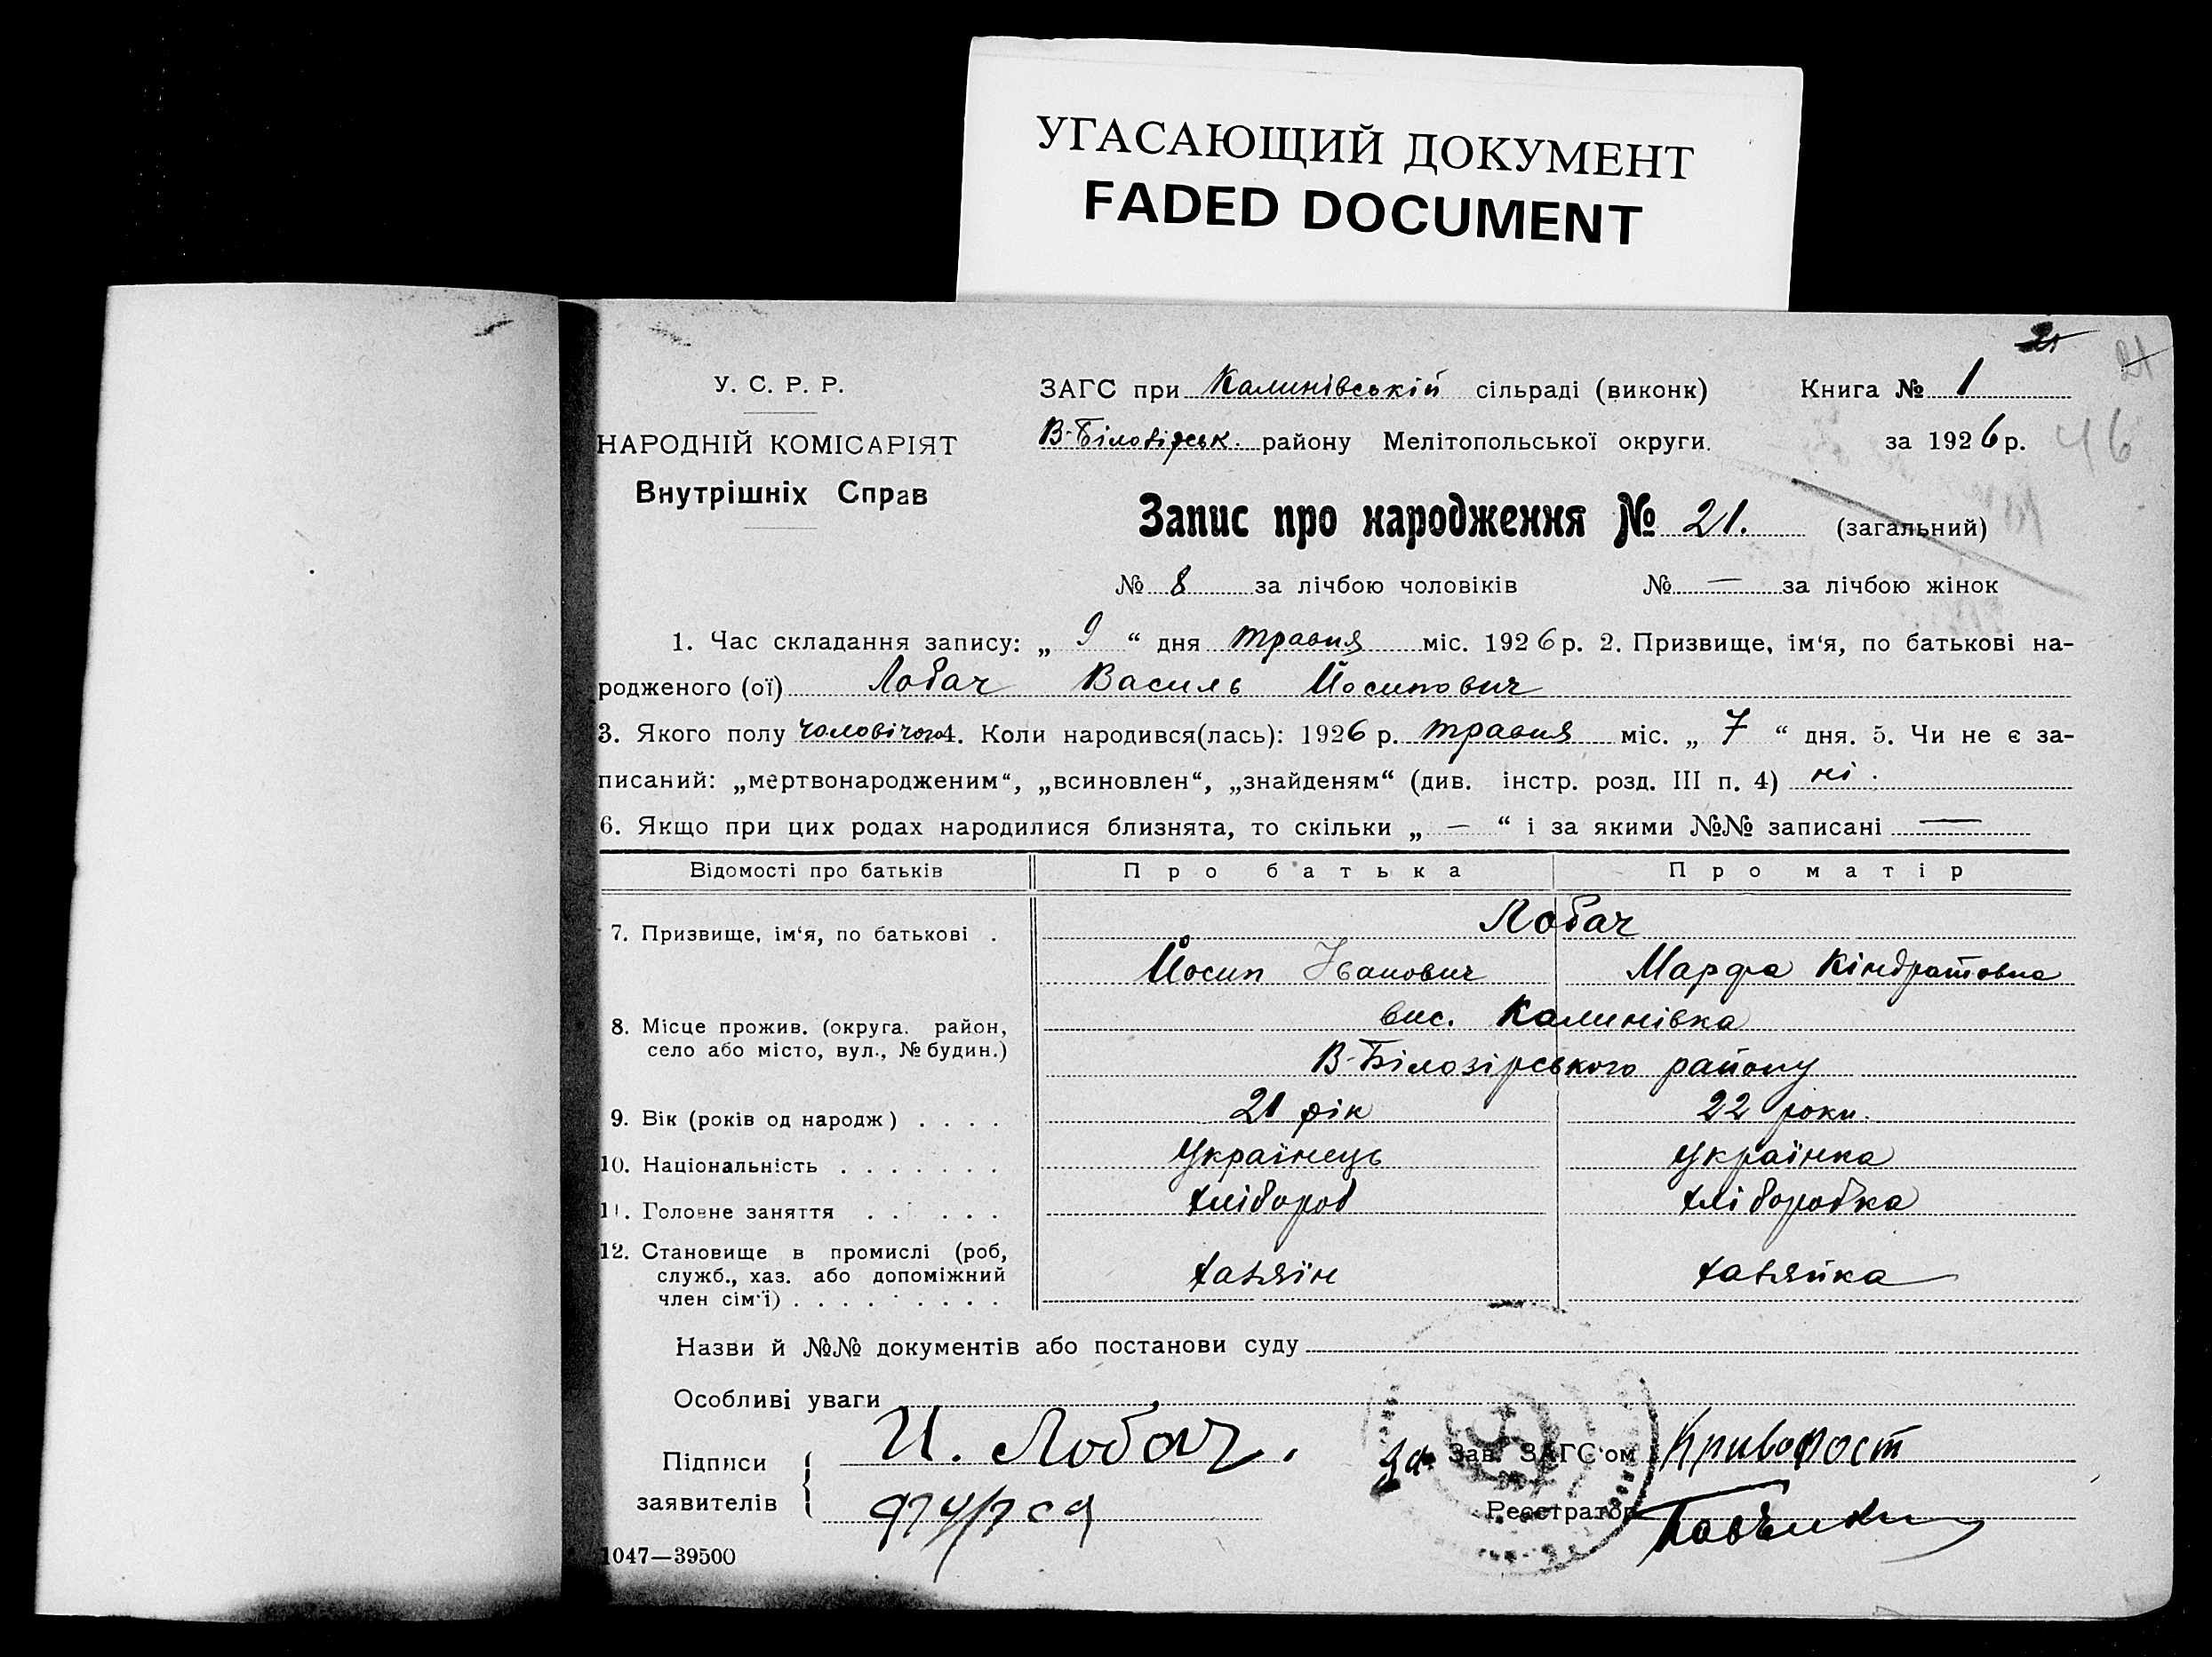 УГАСАЮЩИЙ ДОКУМЕНТ
FADED DOCUMENT
21
21
У. С. Р. Р.
ЗАГС при Калинівській сільраді (виконк)
Книга № 1
НАРОДНІЙ КОМІСАРІЯТ
В-Білозірськ. району Мелітопольської округи.
за 1926 р.
46
Внутрішніх Справ
Запис про народження № 21. (загальний)
№ 8 за лічбою чоловіків № — за лічбою жінок
1. Час складання запису: „ 9 “ дня травня міс. 1926 р. 2. Призвище, ім‘я, по батькові на-
родженого (ої) Лобач Василь Йосипович
3. Якого полу чоловічого 4. Коли народився(лась): 1926 р. травня міс. „ 7 “ дня. 5. Чи не є за-
писаний: „мертвонародженим“, „всиновлен“, „знайденям“ (див. інстр. розд. III п. 4) ні.
6. Якщо при цих родах народилися близнята, то скільки „ — “ і за якими №№ записані —
Відомості про батьків Про батька Про матір
7. Призвище, ім‘я, по батькові . Лобач
Йосип Іванович Марфа Кіндратовна
8. Місце прожив. (округа. район, вис. Калинівка
село або місто, вул., № будин.)
В-Білозірського району
9. Вік (років од народж) . . . . 21 рік 22 роки.
10. Національність . . . . . . . Українець Українка
11. Головне заняття . . . . . . хлібороб хліборобка
12. Становище в промислі (роб,
служб., хаз. або допоміжний хазяїн хазяйка
член сім‘ї) . . . . . . . . .
Назви й №№ документів або постанови суду
Особливі уваги
Підписи И. Лобач.
За Зав. ЗАГС‘ом Криворост
заявителів
Реєстратор
1047—39500